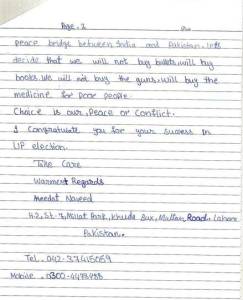 Page. 2
peace bridge between India and Pakistan. lets
decide that we will not buy bullets, will buy
books. We will not buy the guns, will buy the
medicine for poor people.
Choice is our, Peace or Conflict.
I Congratulate you for your success in
UP election.
Take Care
Warmest Regards
Naveed
H-2, St-3, Milat Park, Khuda Bux, Multan Road, Lahore
Pakistan.
Tel. 042-37415059
Mobile. 0300-